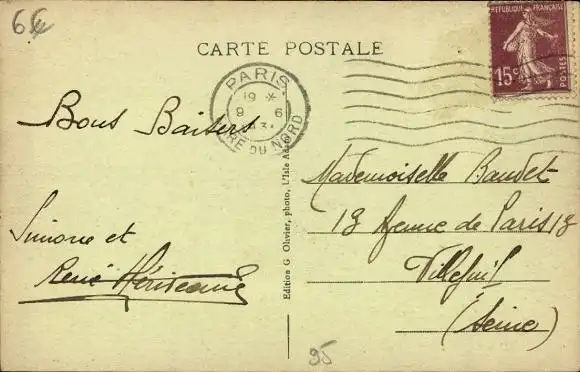 6€
CARTE POSTALE
REPUBLIQUE FRANÇAISE
15c
POSTES
PARIS
19 *
9 6
31
GARE DU NORD
Bons Baisers
Simone et
René
Edition G Olivier, photo, L'Isle Adam
Mademoiselle Baudet
13 Avenue de Paris 13
Villejuif
(Seine)
95